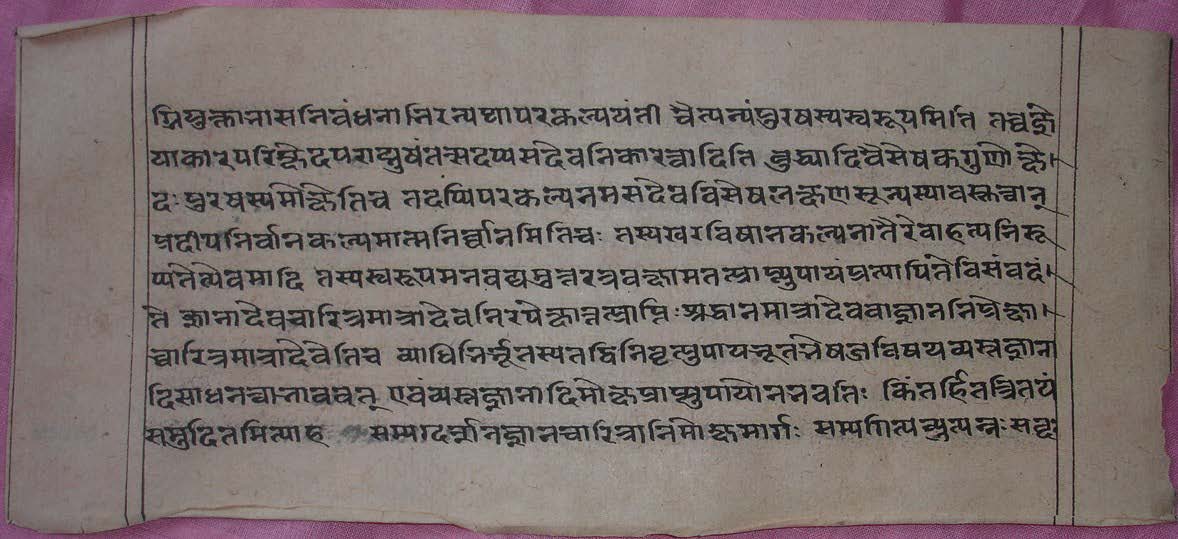 त्रियुक्तानासनिबंधनानिरत्यथापरकल्पयंती चैत्यन्यंपुरषस्यस्वरूपमिति तच्चज्ञे
याकारपरिछेदपराङ्मुषंतत्सदप्यसदेवनिकारत्वादिति बुद्ध्यादिवैसेषकगुणोछे
दःपुरषस्यमोक्षेतिच तदप्यिपरकल्पनमसदेवविसेषलक्षणसून्यस्यावस्तत्वान्
प्रदीपनिर्वानकल्पमात्मनिर्वानमितिचः तस्यखरविषानकल्पनातैरेवाहत्यनिरू
प्यतेत्येवमादि तस्यस्वरूपमनवद्यमुत्तरत्रवक्षामतत्प्राप्त्युपायंप्रत्यापितेविसंवदं
ते ज्ञानादेवचारित्रमात्रादेवनिरपेक्षात्तत्प्राप्तिःश्रद्धानमात्रादेववाज्ञाननिर्पेक्षा
च्चारित्रमात्रादेवेतिच व्याधिभिर्भूतस्यतद्विनिवृत्त्युपायभूतभेषजविषयव्यस्तज्ञाना
दिसाधनत्वाभाववत् एवंव्यस्तज्ञानादिमोक्षप्राप्त्युपायोनभवतिः किंतर्हितत्रितयं
समुदितमित्याह सम्यग्दर्शनज्ञानचारित्रानिमोक्षमार्गः सम्यगित्यव्युत्पन्नःसद्वः